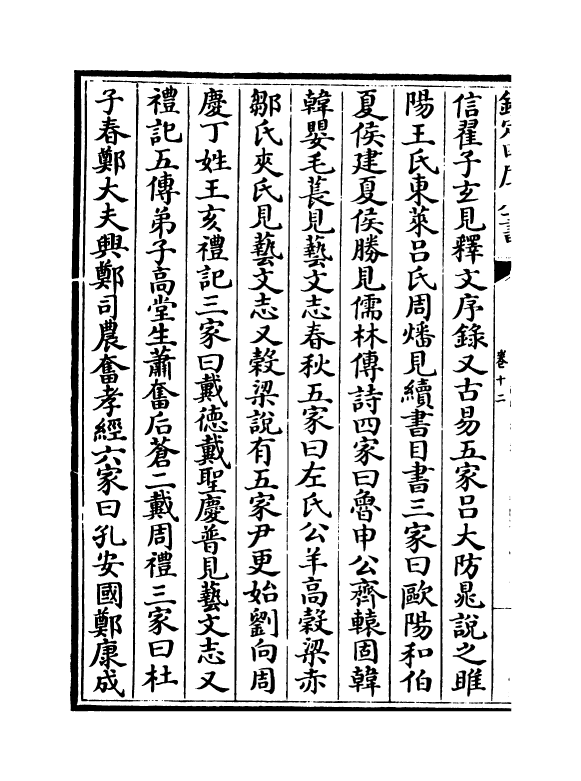 卷十二
信翟子玄見釋文序錄又古易五家吕大防晁說之睢
陽王氏東萊吕氏周燔見續書目書三家曰歐陽和伯
夏侯建夏侯勝見儒林傳詩四家曰魯申公齊轅固韓
韓嬰毛萇見藝文志春秋五家曰左氏公羊高穀梁赤
鄒氏夾氏見藝文志又穀梁說有五家尹更始劉向周
慶丁姓王亥禮記三家曰戴徳戴聖慶普見藝文志又
禮記五傳弟子高堂生蕭奮后蒼二戴周禮三家曰杜
子春鄭大夫興鄭司農奮孝經六家曰孔安國鄭康成